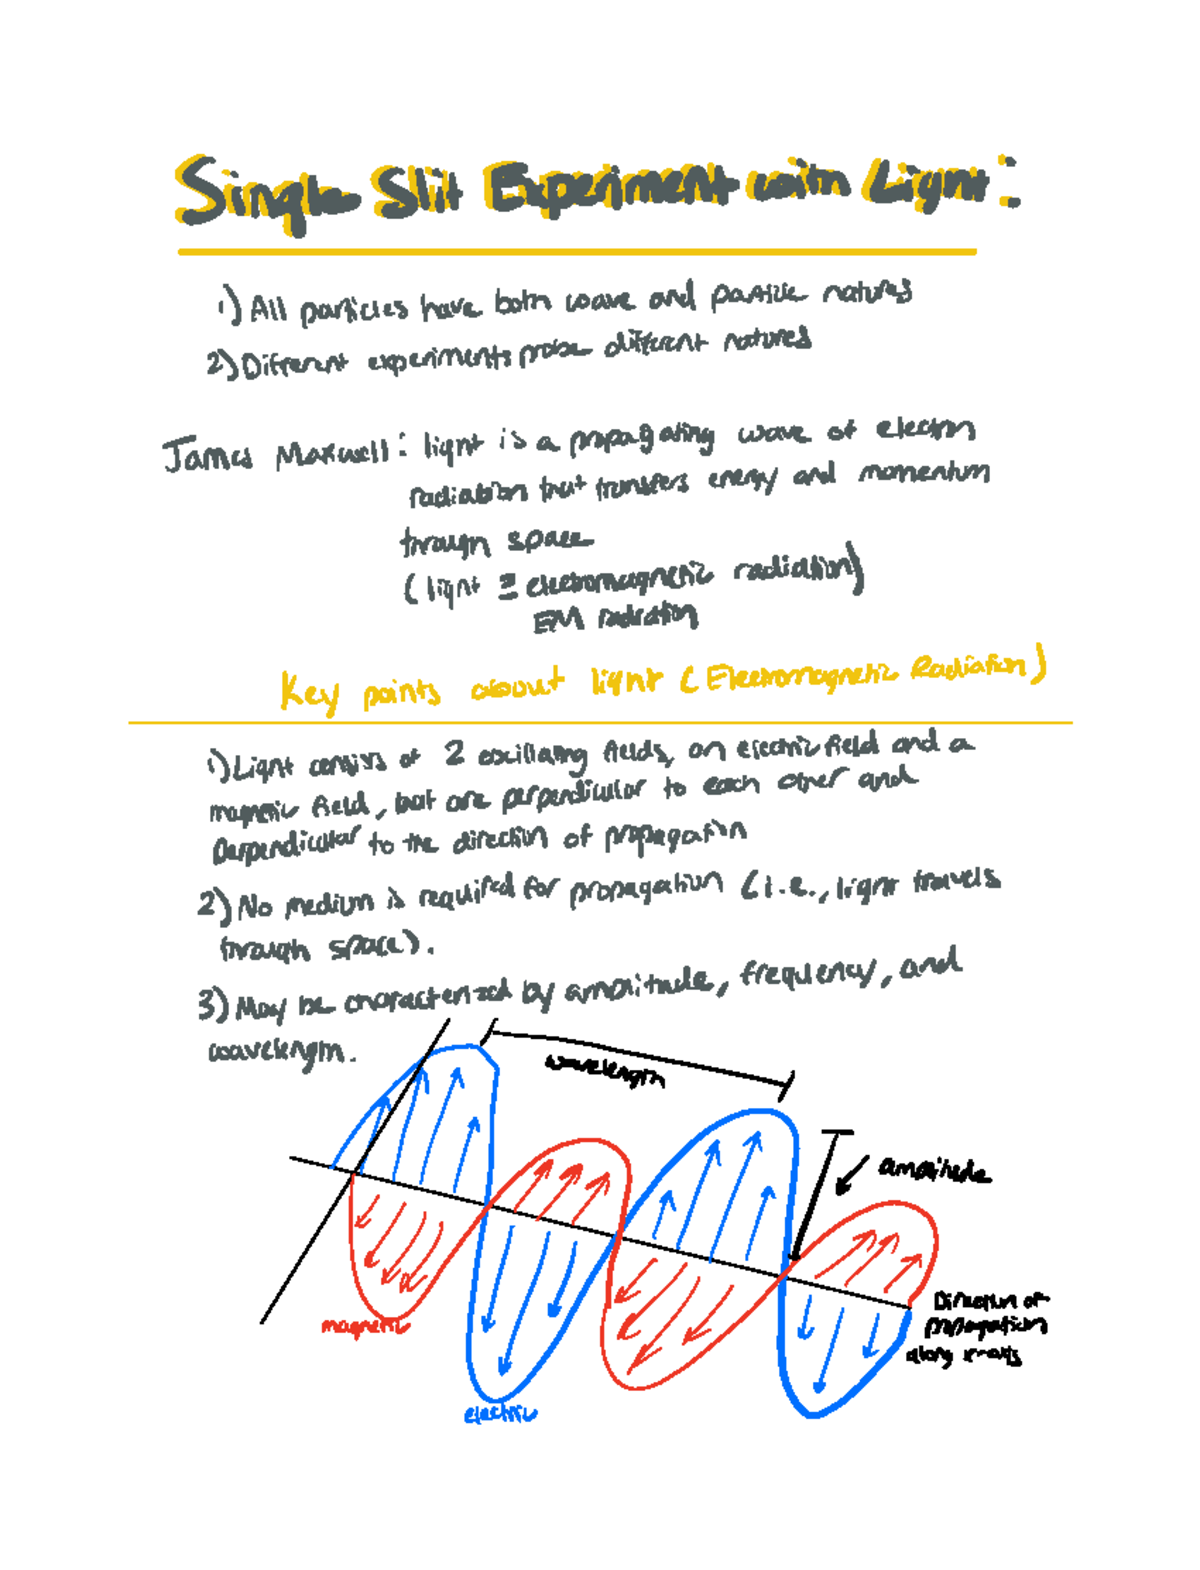 Single Slit Experiment with Light:
1) All particles have both wave and particle natures
2) Different experiments probe different natures
James Maxwell: light is a propagating wave of electron
radiation that transfers energy and momentum
through space
(light ≡ electromagnetic radiation)
EM radiation
Key points about light (Electromagnetic Radiation)
1) Light consists of 2 oscillating fields, an electric field and a
magnetic field, but are perpendicular to each other and
perpendicular to the direction of propagation
2) No medium is required for propagation (i.e., light travels
through space).
3) May be characterized by amplitude, frequency, and
wavelength.
wavelength
amplitude
magnetic
electric
Direction of
propagation
along x-axis